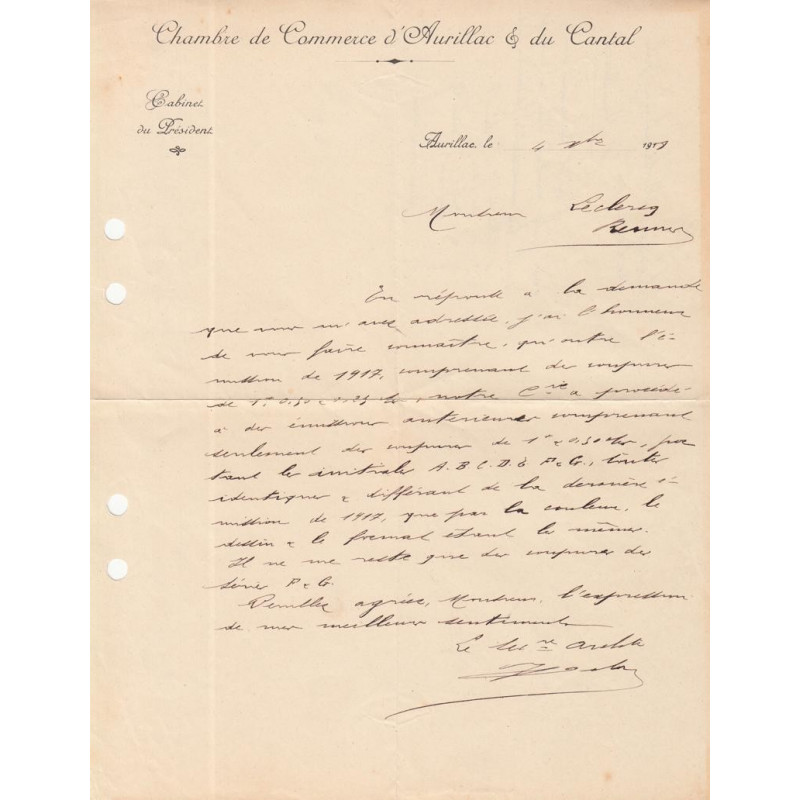 Chambre de Commerce d'Aurillac & du Cantal
Cabinet
du Président
Aurillac, le 4 xbre 1919
Monsieur Leclercq
Rennes
En réponse à la demande
que vous m'avez adressée, j'ai l'honneur
de vous faire connaître, qu'outre l'é-
mission de 1917, comprenant des coupures
de 1f 0,50 & 0,25, notre Cie a procédé
à des émissions antérieures comprenant
seulement des coupures de 1f & 0,50, por
tant les initiales A.B.C.D.E F & G., toutes
identiques & différant de la dernière é-
mission de 1917, que par la couleur, le
dessin & le format étant les mêmes.
Il ne me reste que des coupures des
séries F & G.
Veuillez agréer, Monsieur, l'expression
de mes meilleurs sentiments
Le Secre